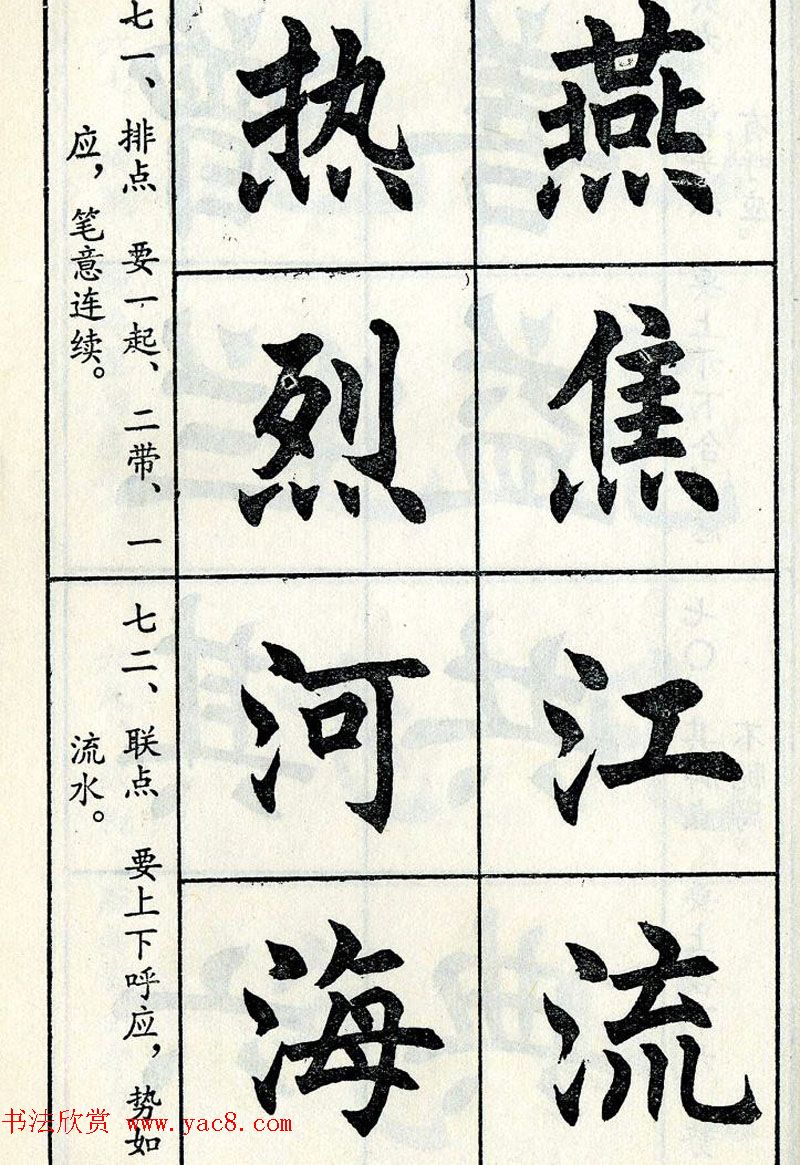 燕焦
热烈
七一、排点 要一起、二带、一
应，笔意连续。
江流
河海
七二、联点 要上下呼应，势如
流水。
书法欣赏 www.yac8.com